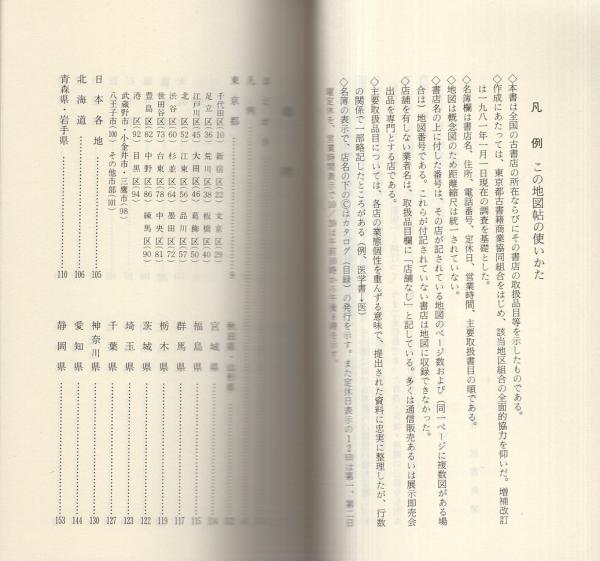 凡例　この地図帖の使いかた
◇本書は全国の古書店の所在ならびにその書店の取扱品目等を示したものである。
◇作成にあたっては、東京都古書籍商業協同組合をはじめ、該当地区組合の全面的協力を仰いだ。増補改訂
は一九八一年一月一日現在の調査を基礎とした。
◇名簿欄は書店名、住所、電話番号、定休日、営業時間、主要取扱書目の順である。
◇地図は概念図のため距離縮尺は統一されていない。
◇書店名の上に付した番号は、その店が記されている地図のページ数および（同一ページに複数図がある場
合は）地図番号である。これらが付記されていない書店は地図に収録できなかった。
◇店舗を有しない業者名は、取扱品目欄に「店舗なし」と記している。多くは通信販売あるいは展示即売会
出品を専門とする店である。
◇主要取扱品目については、各店の業態個性を重んずる意味で、提出された資料に忠実に整理したが、行数
の関係で一部略記したところがある（例、医学書→医）
◇名簿の表示で、店名の下のⒸはカタログ（目録）の発行を示す。また定休日表示の12㊐は第一、第二日
曜定休を、営業時間表示で
東京都
千代田区(10)　新宿区(22)　文京区(29)
足立区(36)　荒川区(38)　板橋区(40)
江戸川区(45)　大田区(46)　葛飾区(50)
北区(52)　江東区(56)　品川区(57)
渋谷区(60)　杉並区(64)　墨田区(72)
世田谷区(73)　台東区(78)　中央区(81)
豊島区(82)　中野区(86)　練馬区(90)
港区(92)　目黒区(94)
武蔵野市・小金井市・三鷹市(98)
八王子市(100)　その他市部(101)
日本各地……105
北海道……106
青森県・岩手県……110
宮城県
福島県……115
群馬県……117
栃木県……119
茨城県……122
埼玉県……123
千葉県……127
神奈川県……130
愛知県……144
静岡県……153